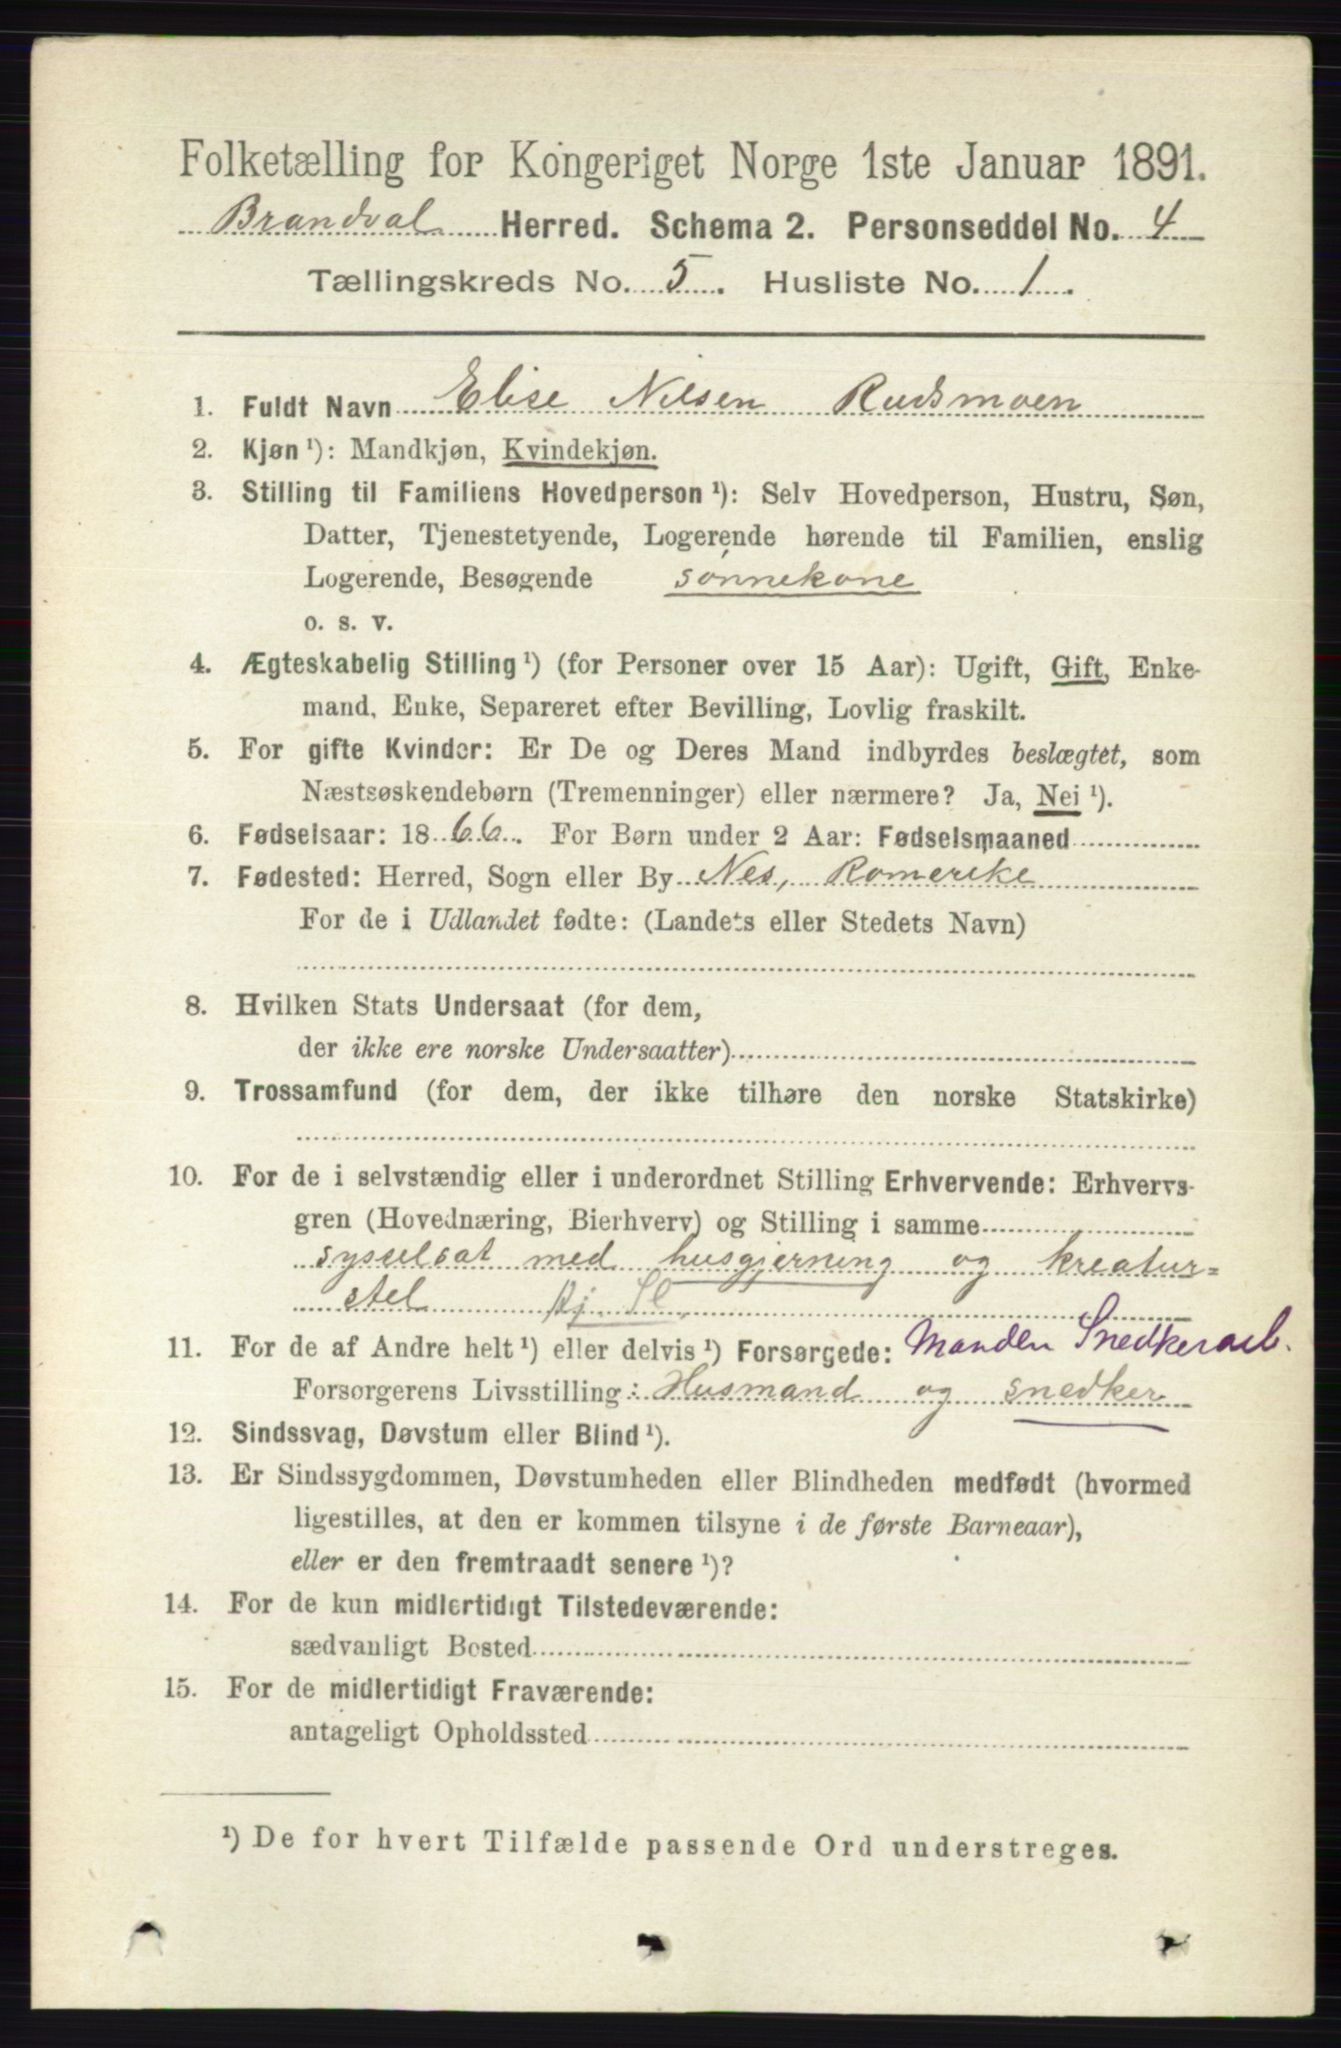 Folketælling for Kongeriget Norge 1ste Januar 1891.
Brandval Herred. Schema 2. Personseddel No. 4
Tællingskreds No. 5. Husliste No. 1.
1. Fuldt Navn Elise Nilsen Rudsmoen
2. Kjøn ¹): Mandkjøn, Kvindekjøn.
3. Stilling til Familiens Hovedperson ¹): Selv Hovedperson, Hustru, Søn,
Datter, Tjenestetyende, Logerende hørende til Familien, enslig
Logerende, Besøgende sønnekone
o. s. v.
4. Ægteskabelig Stilling ¹) (for Personer over 15 Aar): Ugift, Gift, Enke-
mand, Enke, Separeret efter Bevilling, Lovlig fraskilt.
5. For gifte Kvinder: Er De og Deres Mand indbyrdes beslægtet, som
Næstsøskendebørn (Tremenninger) eller nærmere? Ja, Nei ¹).
6. Fødselsaar: 1866. For Børn under 2 Aar: Fødselsmaaned
7. Fødested: Herred, Sogn eller By Nes, Romerike
For de i Udlandet fødte: (Landets eller Stedets Navn)
8. Hvilken Stats Undersaat (for dem,
der ikke ere norske Undersaatter)
9. Trossamfund (for dem, der ikke tilhøre den norske Statskirke)
10. For de i selvstændig eller i underordnet Stilling Erhvervende: Erhvervs-
gren (Hovednæring, Bierhverv) og Stilling i samme
sysselsat med husgjerning og kreatur=
stel
11. For de af Andre helt ¹) eller delvis ¹) Forsørgede: Manden Snedkerarb.
Forsørgerens Livsstilling: Husmand og snedker
12. Sindssvag, Døvstum eller Blind ¹).
13. Er Sindssygdommen, Døvstumheden eller Blindheden medfødt (hvormed
ligestilles, at den er kommen tilsyne i de første Barneaar),
eller er den fremtraadt senere ¹)?
14. For de kun midlertidigt Tilstedeværende:
sædvanligt Bosted
15. For de midlertidigt Fraværende:
antageligt Opholdssted
¹) De for hvert Tilfælde passende Ord understreges.